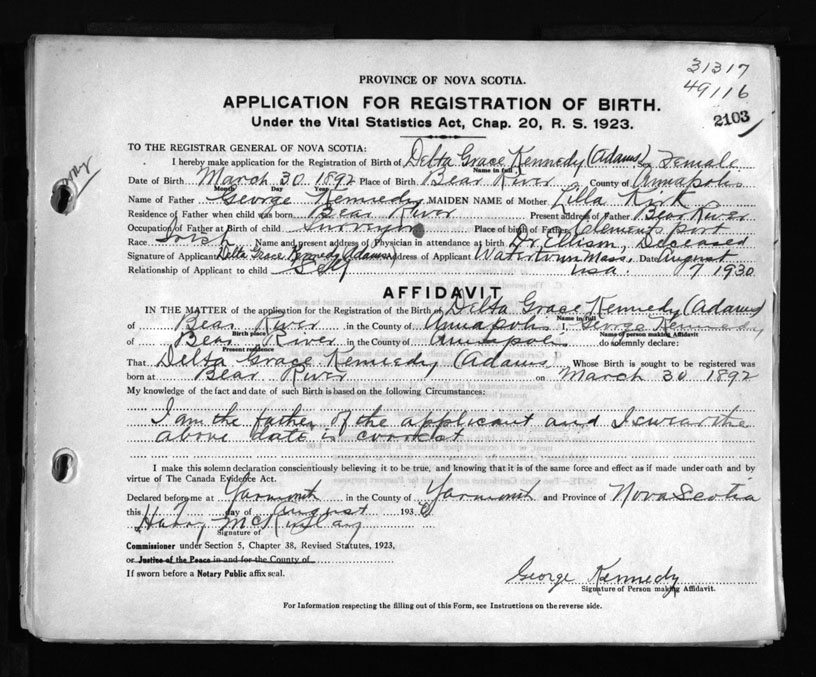 31317
49116
2103
PROVINCE OF NOVA SCOTIA.
APPLICATION FOR REGISTRATION OF BIRTH.
Under the Vital Statistics Act, Chap. 20, R. S. 1923.
TO THE REGISTRAR GENERAL OF NOVA SCOTIA:
I hereby make application for the Registration of Birth of Delta Grace Kennedy (Adams) Sex Female
Name in full
Date of Birth March 30 1892 Place of Birth Bear River County of Annapolis
Month Day Year
Name of Father George Kennedy MAIDEN NAME of Mother Lilla Kirk
Residence of Father when child was born Bear River Present address of Father Bear River
Occupation of Father at Birth of child Surveyor Place of birth of Father Clementsport
Race Irish Name and present address of Physician in attendance at birth Dr. Ellison, Deceased
Signature of Applicant Delta Grace Kennedy (Adams) Address of Applicant Watertown Mass. Date August
Relationship of Applicant to child Self usa. 7 1930
AFFIDAVIT
IN THE MATTER of the application for the Registration of the Birth of Delta Grace Kennedy (Adams)
Name in Full
of Bear River in the County of Annapolis I, George Kennedy
Birth place Name of person making Affidavit
of Bear River in the County of Annapolis do solemnly declare:
Present residence
That Delta Grace Kennedy (Adams) Whose Birth is sought to be registered was
born at Bear River on March 30 1892
My knowledge of the fact and date of such Birth is based on the following Circumstances:
I am the father of the applicant and I swear the
above date is correct
I make this solemn declaration conscientiously believing it to be true, and knowing that it is of the same force and effect as if made under oath and by
virtue of The Canada Evidence Act.
Declared before me at Yarmouth in the County of Yarmouth and Province of Nova Scotia
this 7 day of August 1930
Harry McKinlay
Signature of
Commissioner under Section 5, Chapter 38, Revised Statutes, 1923,
or Justice of the Peace in and for the County of
If sworn before a Notary Public affix seal.
George Kennedy
Signature of Person making Affidavit.
For Information respecting the filling out of this Form, see Instructions on the reverse side.